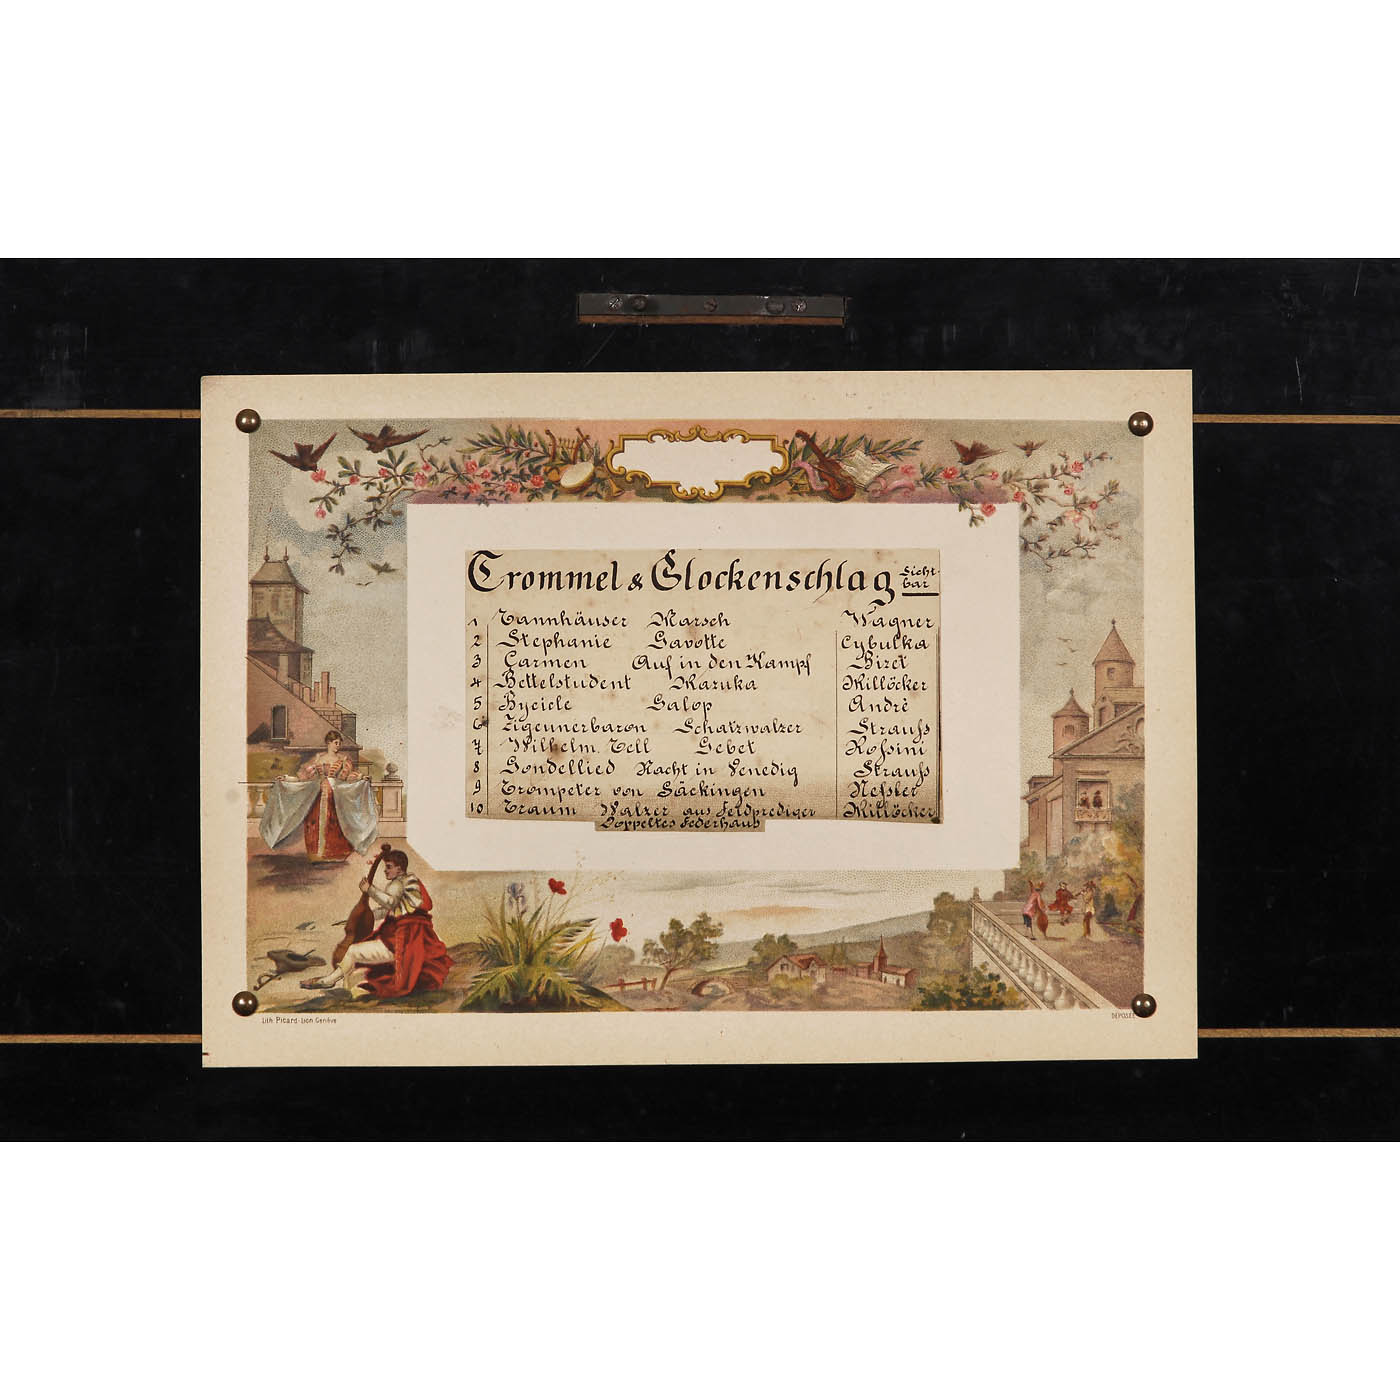 Trommel & Glockenschlag Sicht-
bar
1 Tannhäuser Marsch Wagner
2 Stephanie Gavotte Cybulka
3 Carmen Auf in den Kampf Bizet
4 Bettelstudent Mazuka Millöcker
5 Bycicle Galop Andrè
6 Zigeunerbaron Schatzwalzer Strauss
7 Wilhelm Tell Gebet Rossini
8 Gondellied Nacht in Venedig Strauss
9 Trompeter von Säckingen Nessler
10 Traum Walzer aus Feldprediger Millöcker
Doppeltes Federhaus
Lith. Picard-Lion Genève
DÉPOSÉ